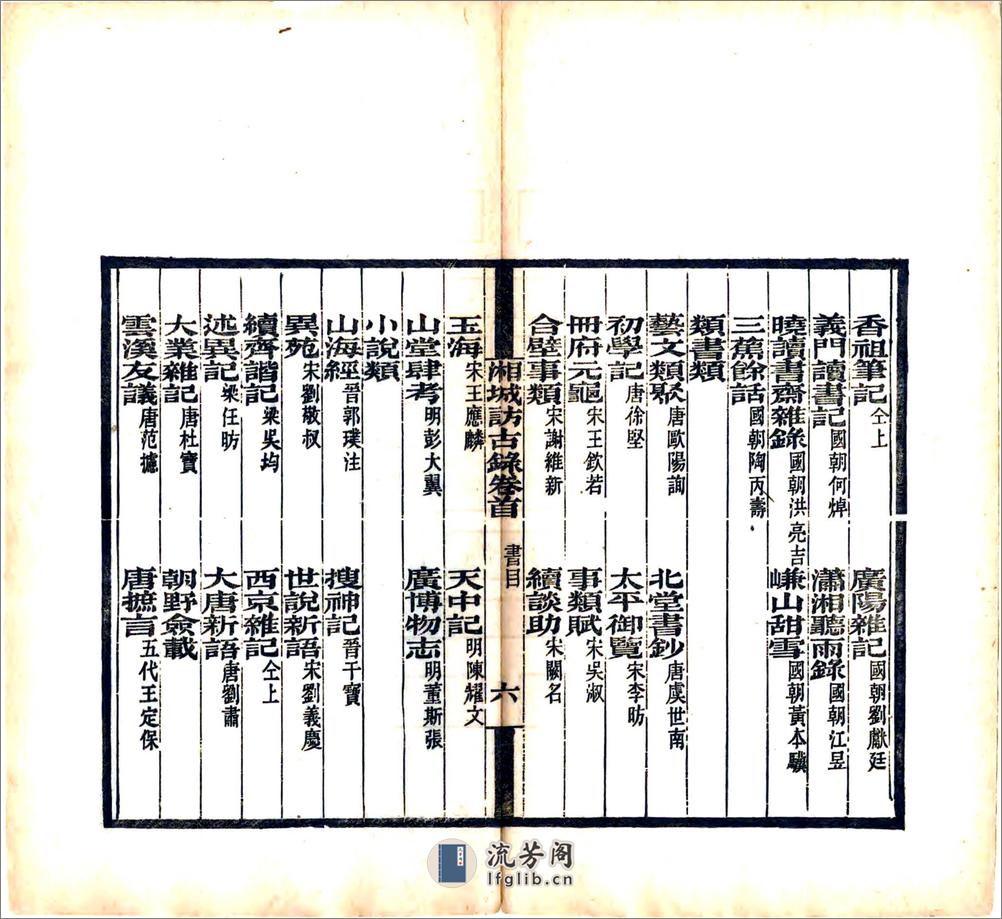 香祖筆記仝上 廣陽雜記國朝劉獻廷
義門讀書記國朝何焯 瀟湘聽雨錄國朝江昱
曉讀書齋雜錄國朝洪亮吉 㟻山甜雪國朝黃本驥
三蕉餘話國朝陶丙壽
類書類
藝文類聚唐歐陽詢 北堂書鈔唐虞世南
初學記唐徐堅 太平御覽宋李昉
冊府元龜宋王欽若 事類賦宋吳淑
合璧事類宋謝維新 續談助宋闕名
湘城訪古錄卷首 書目 六
玉海宋王應麟 天中記明陳耀文
山堂肆考明彭大翼 廣博物志明董斯張
小說類
山海經晉郭璞注 搜神記晉干寶
異苑宋劉敬叔 世說新語宋劉義慶
續齊諧記梁吳均 西京雜記仝上
述異記梁任昉 大唐新語唐劉肅
大業雜記唐杜寶 朝野僉載
雲溪友議唐范攄 唐摭言五代王定保
流芳閣
lfglib.cn